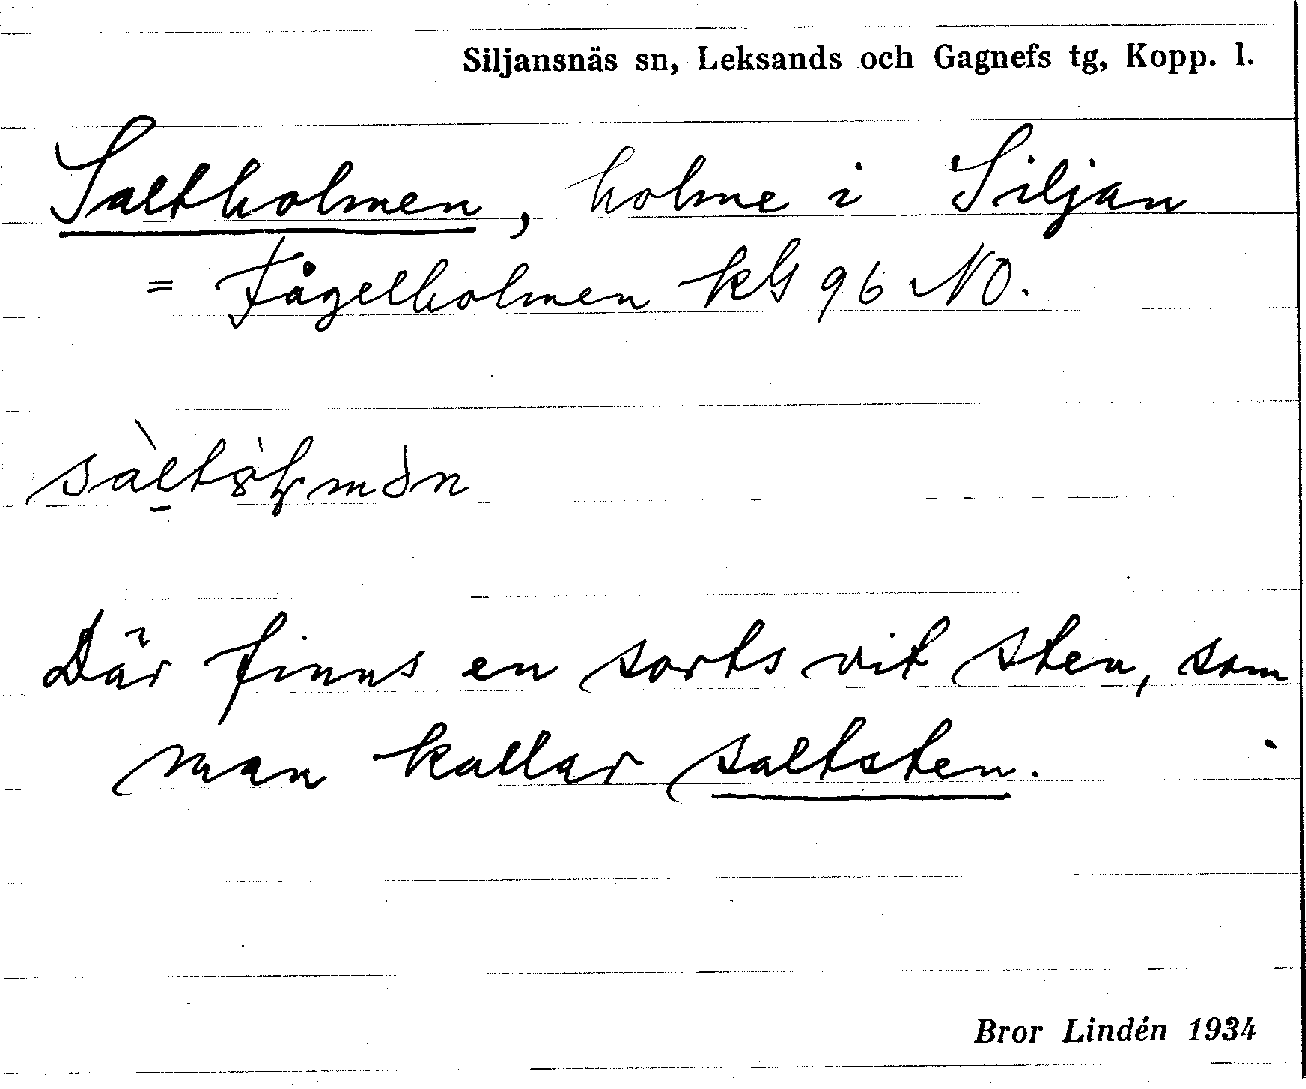 Siljansnäs sn, Leksands och Gagnefs tg, Kopp. l.
Saltholmen, holme i Siljan
= Fågelholmen kG 96 NO.
Där finns en sorts vit sten, som
man kallar saltsten.
Bror Lindén 1934